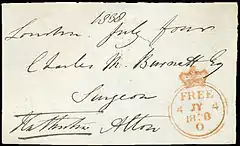 1838
London July four
Charles M. Burnett Esq
Surgeon
Alton
FREE
4 4
JY
1838